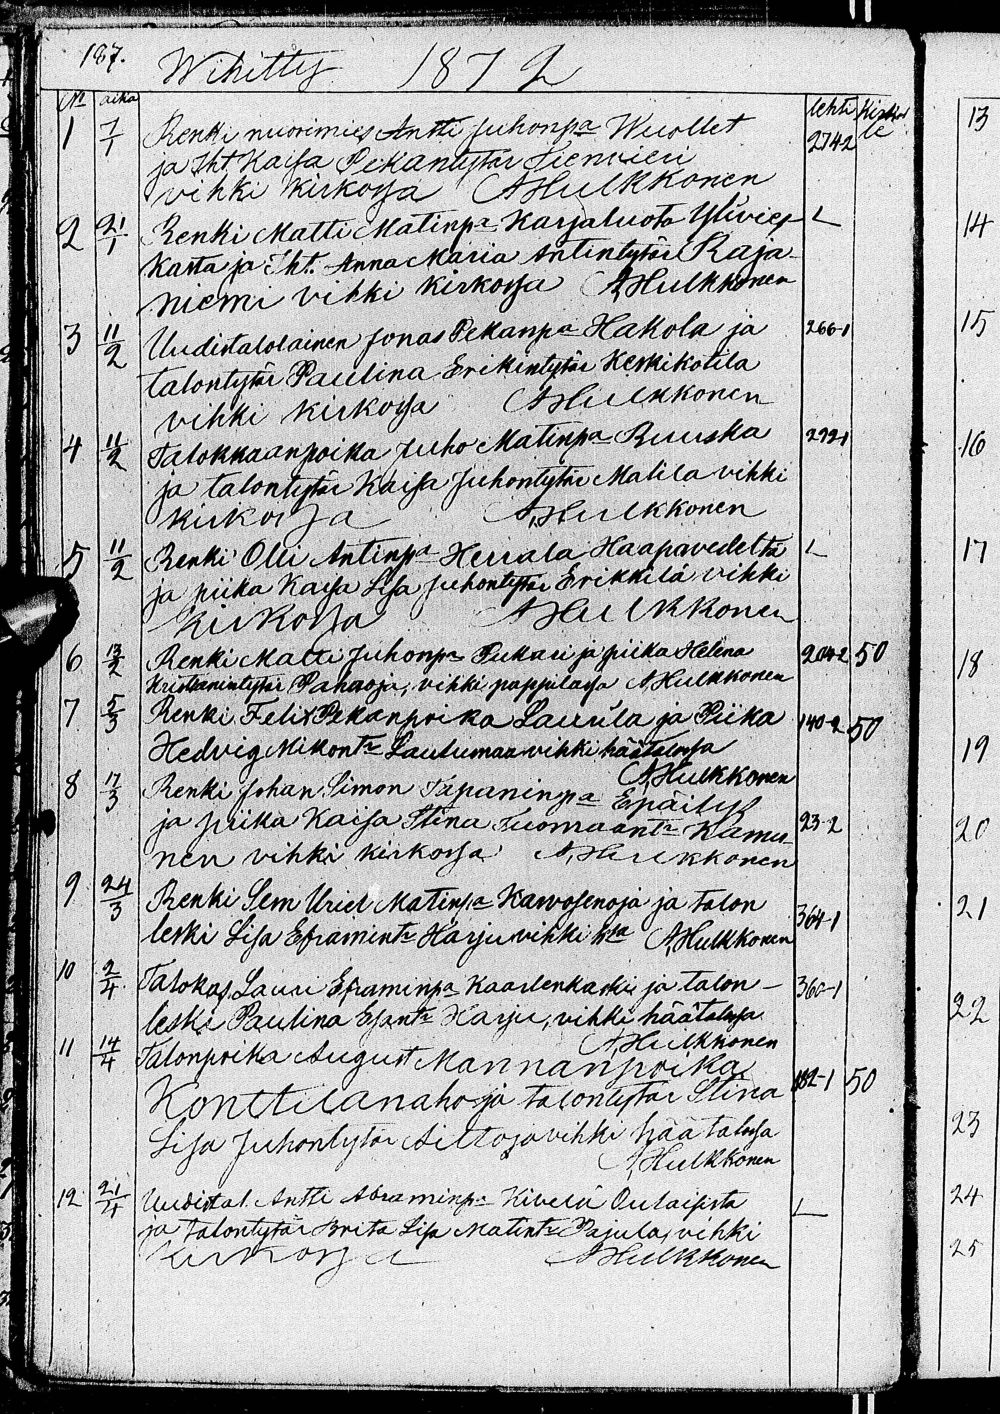 187. Wihitty 1872
No aika lehti
1 7/1 Renki nuorimies Antti Juhonpa Wuollet 274-2
ja Iht. Kaisa Pekantytär Tienvieri
vihki kirkossa AHulkkonen
2 21/1 Renki Matti Matinpa Karjaluoto Ylivies-
kasta ja Iht. Anna Maria Antintytär Raja-
niemi vihki kirkossa AHulkkonen
3 11/2 Uudistalolainen Jonas Pekanpa Hakola ja 266-1
talontytär Paulina Erikintytär Keskikotila
vihki kirkossa AHulkkonen
4 11/2 Talokkaanpoika Juho Matinpa Ruuska 292-1
ja talontytär Kaisa Juhontytär Matila vihki
kirkossa AHulkkonen
5 11/2 Renki Olli Antinpa Herrala Haapavedeltä
ja piika Kaisa Lisa Juhontytär Erikkilä vihki
kirkossa AHulkkonen
6 13/2 Renki Matti Juhonpa Pukari ja piika Helena 204-2 50
Kristianintytär Pahaoja, vihki pappilassa AHulkkonen
7 5/3 Renki Felix Pekanpoika Laurila ja Piika 140-2 50
Hedvig Mikontr Lautumaa vihki häätalossa
AHulkkonen
8 17/3 Renki Johan Simon Tapaninpa Epäilys
ja piika Kaisa Stina Tuomaantr Kamu- 23-2
nen vihki kirkossa AHulkkonen
9 24/3 Renki Sem Uriel Matinpa Karvosenoja ja talon
leski Lisa Eframintr Harju vihki AHulkkonen 364-1
10 2/4 Talokas Lauri Eframinpa Kaarlenkaski ja talon- 360-1
leski Paulina Harju, vihki häätalossa
AHulkkonen
11 14/4 Talonpoika August Mannanpoika
Konttilanaho ja talontytär Stina 182-1 50
Lisa Juhontytär Aittoja vihki häätalossa
AHulkkonen
12 21/4 Uudistal. Antti Abraminpa Kivelä Oulaisista
ja talontytär Brita Lisa Matintr Pajula, vihki
kirkossa AHulkkonen
13
14
15
16
17
18
19
20
21
22
23
24
25